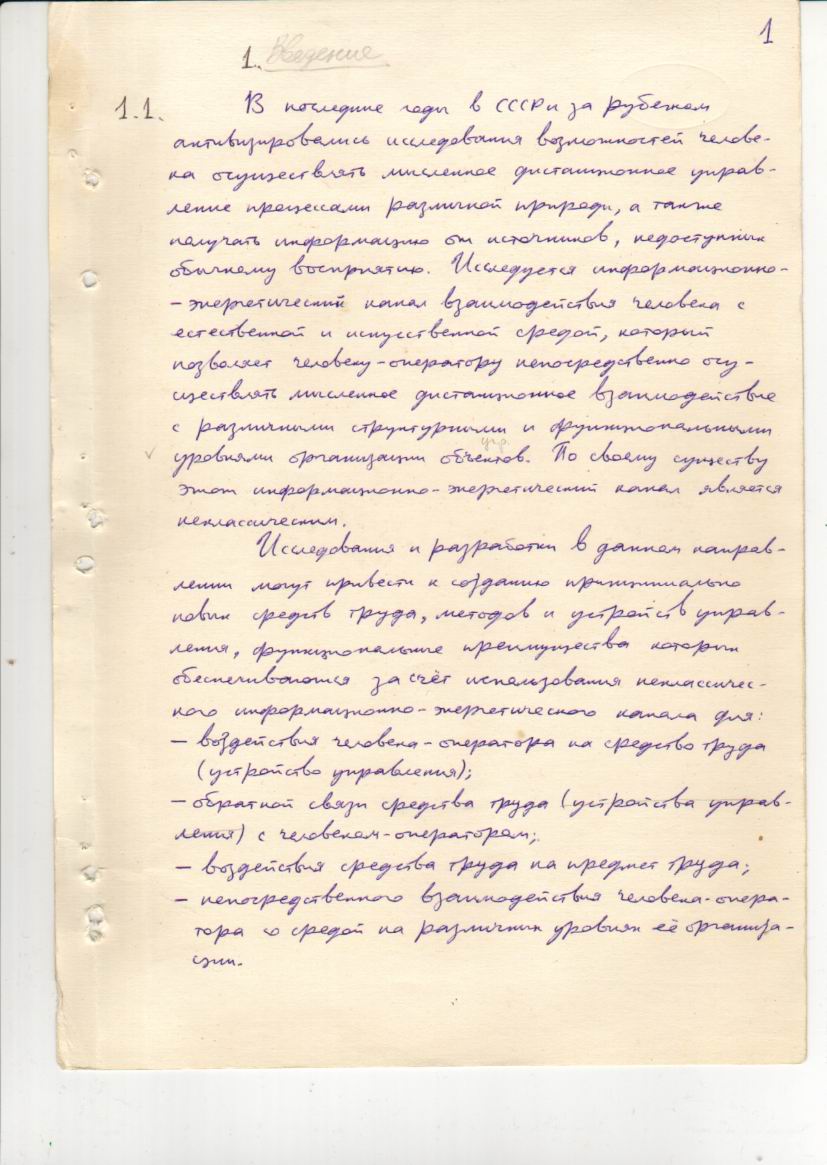 1
1. Введение
1.1. В последние годы в СССР и за рубежом
активизировались исследования возможностей челове-
ка осуществлять мысленное дистанционное управ-
ление процессами различной природы, а также
получать информацию от источников, недоступных
обычному восприятию. Исследуется информационно-
-энергетический канал взаимодействия человека с
естественной и искусственной средой, который
позволяет человеку-оператору непосредственно осу-
ществлять мысленное дистанционное взаимодействие
с различными структурными и функциональными
упр.
уровнями организации объектов. По своему существу
этот информационно-энергетический канал является
неклассическим.
Исследования и разработки в данном направ-
лении могут привести к созданию принципиально
новых средств труда, методов и устройств управ-
ления, функциональные преимущества которых
обеспечиваются за счёт использования неклассичес-
кого информационно-энергетического канала для:
– воздействия человека-оператора на средство труда
(устройство управления);
– обратной связи средства труда (устройства управ-
ления) с человеком-оператором;
– воздействия средства труда на предмет труда;
– непосредственного взаимодействия человека-опера-
тора со средой на различных уровнях её организа-
ции.